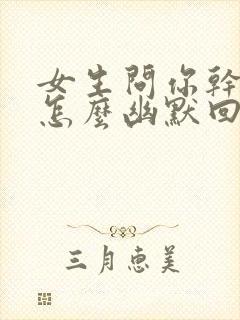 女生問你幹
怎麼幽默回
三月惠美